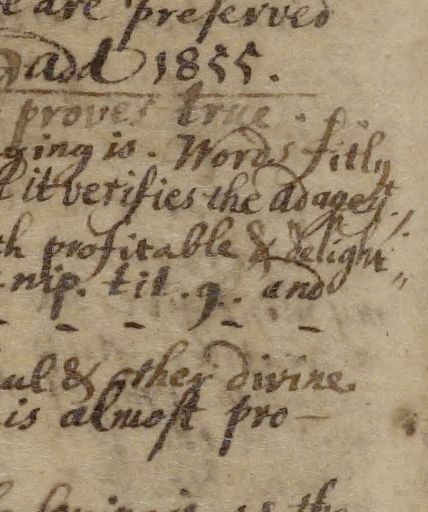 e are preſerved
add 1855.
proves true.
ging is. Words fitly
it verifies the adage
th profitable & delight
nip. tit. 9. and
ul & other divine
is almoſt pro-
is the